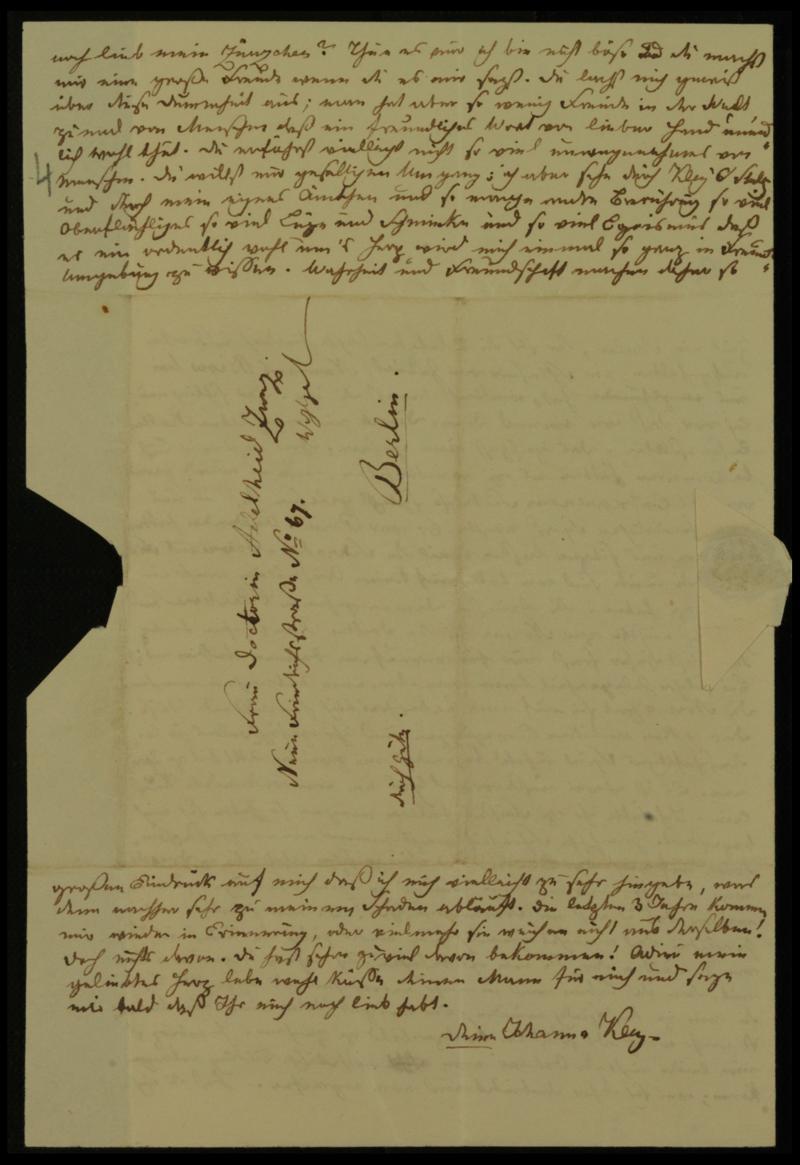 noch lieb mein Jungchen? Thue es nur ich bin nicht böse und du machst
mir eine große Freude wenn du es mir sagst. Du lachst mich gewiß
über diese Dummheit aus; man hat aber so wenig Freude in der Welt
zumal von Menschen daß ein freundliches Wort von lieber Hand unend
lich wohl thut. Du erfährst vielleicht nicht so viel unangenehmes von
Menschen. Du willst nur geselligen Umgang; ich aber sehe durch Kley's Stelle
4
und durch mein eignes Ämtchen und so manche andre Berührung so viel
Oberflächliches so viel Lüge und Schminke und so viel Egoismus daß
es mir ordentlich wohl um's Herz wird mich einmal so ganz in Freundes
Umgebung zu wissen. Wahrheit und Freundschaft machen daher so
Frau Doctorin Adelheid Zunz.
Neue Friedrichsstraße No 67.
Berlin.
durch Güte.
großen Eindruck auf mich daß ich mich vielleicht zu sehr hingebe, was
denn nachher sehr zu meinem Schaden abläuft. Die letzten 3 Jahre kommen
mir wieder in Erinnerung, oder vielmehr sie weichen nicht aus derselben!
Doch nichts davon. Du hast schon zuviel davon bekommen! Adieu mein
geliebtes Herz lebe wohl küsse deinen Mann für mich und sage
mir bald daß Ihr mich noch lieb habt.
Deine Johanna Kley